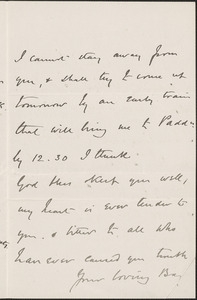 I cannot stay away from
you, & shall try to come up
tomorrow by an early train
that will bring me to Padd:
by 12.30 I think
God bless & keep you well,
my heart is ever tender to
you & bitter to all who
have ever caused you trouble
Your loving